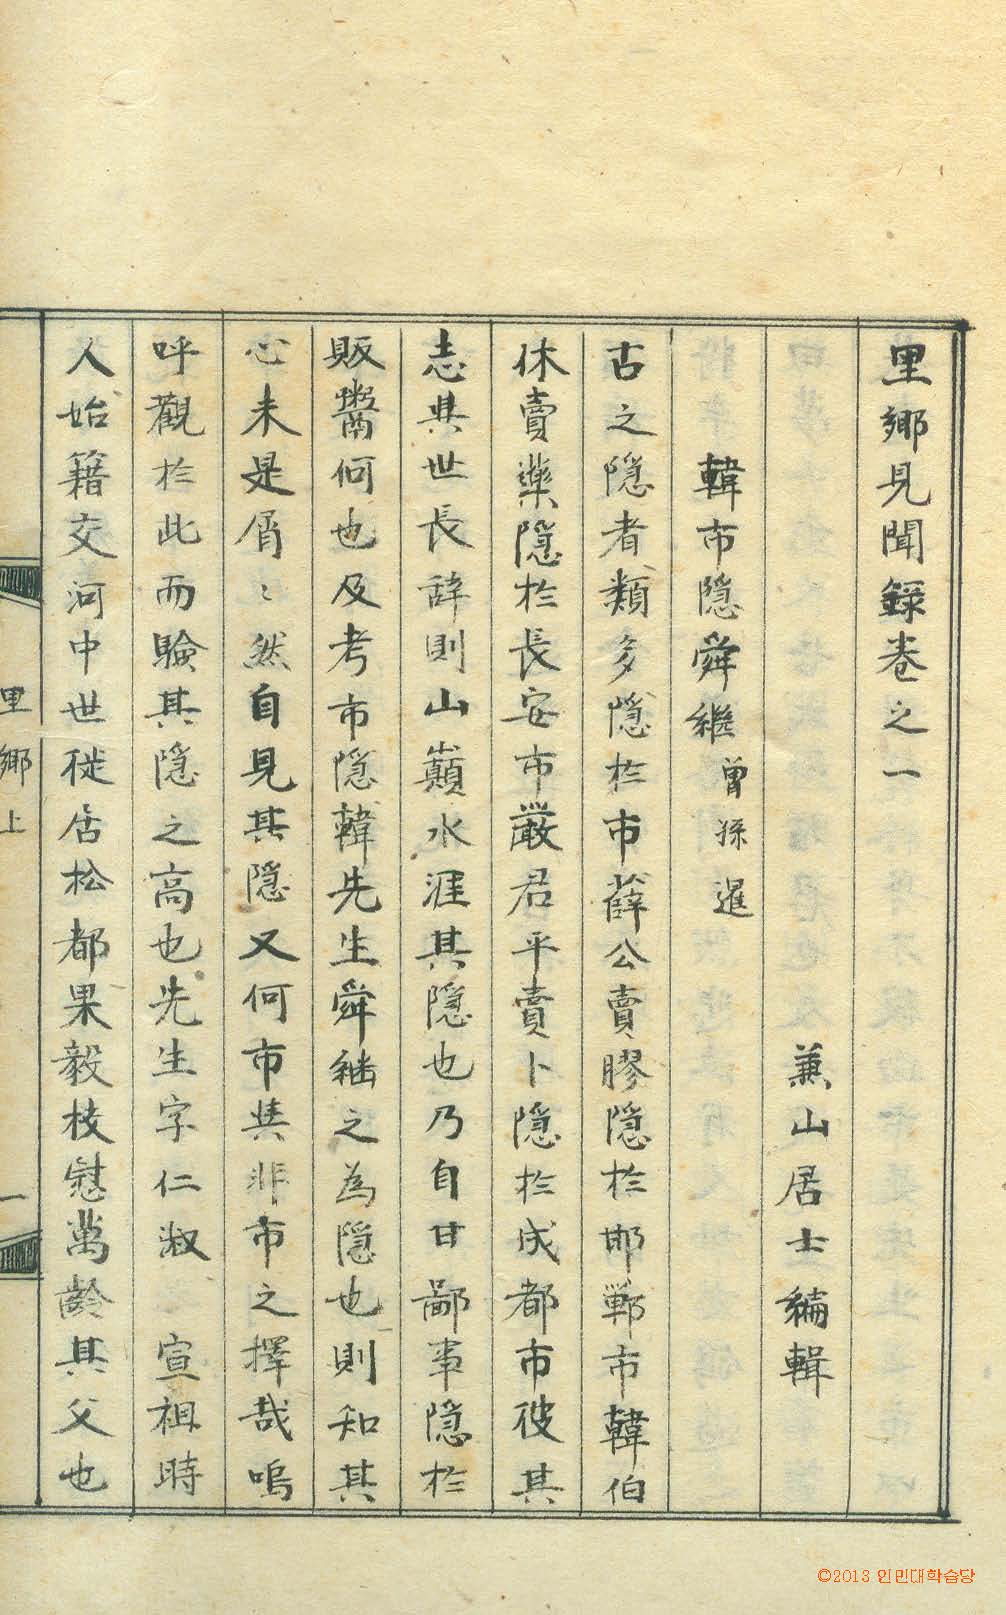 里鄉見聞錄卷之一
兼山居士編輯
韓市隱舜繼 曾孫暹
古之隱者類多隱於市薛公賣膠隱於邯鄲市韓伯
休賣藥隱於長安市嚴君平賣卜隱於成都市彼其
志與世長辭則山巔水涯其隱也乃自甘鄙事隱於
販鬻何也及考市隱韓先生舜継之為隱也則知其
心未是屑〻然自見其隱又何市與非市之擇哉嗚
呼觀於此而驗其隱之高也先生字仁淑 宣祖時
人始籍交河中世徙居松都果毅校慰萬齡其父也
里鄉上
一
©2013 인민대학습당